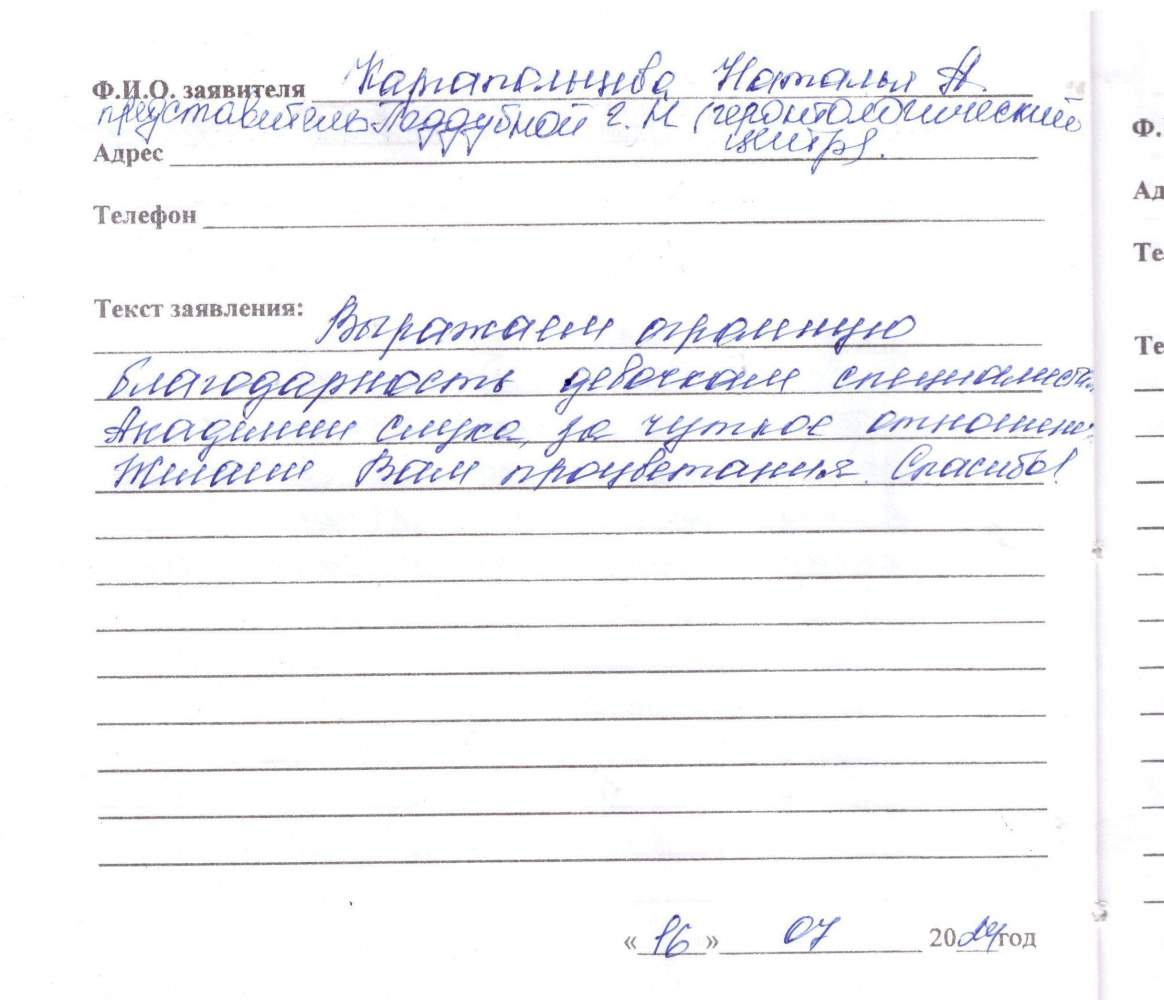 Ф.И.О. заявителя Карапольцева Наталья А.
представитель Поддубной Г. М (геронтологический
центр).
Адрес
Телефон
Текст заявления:
Выражаем огромную
благодарность девочкам специалиста
Академии слуха, за чуткое отношение
Желаем Вам процветания. Спасибо!
« 16 » 07 2024 год
Ф.
Ад
Те
Те